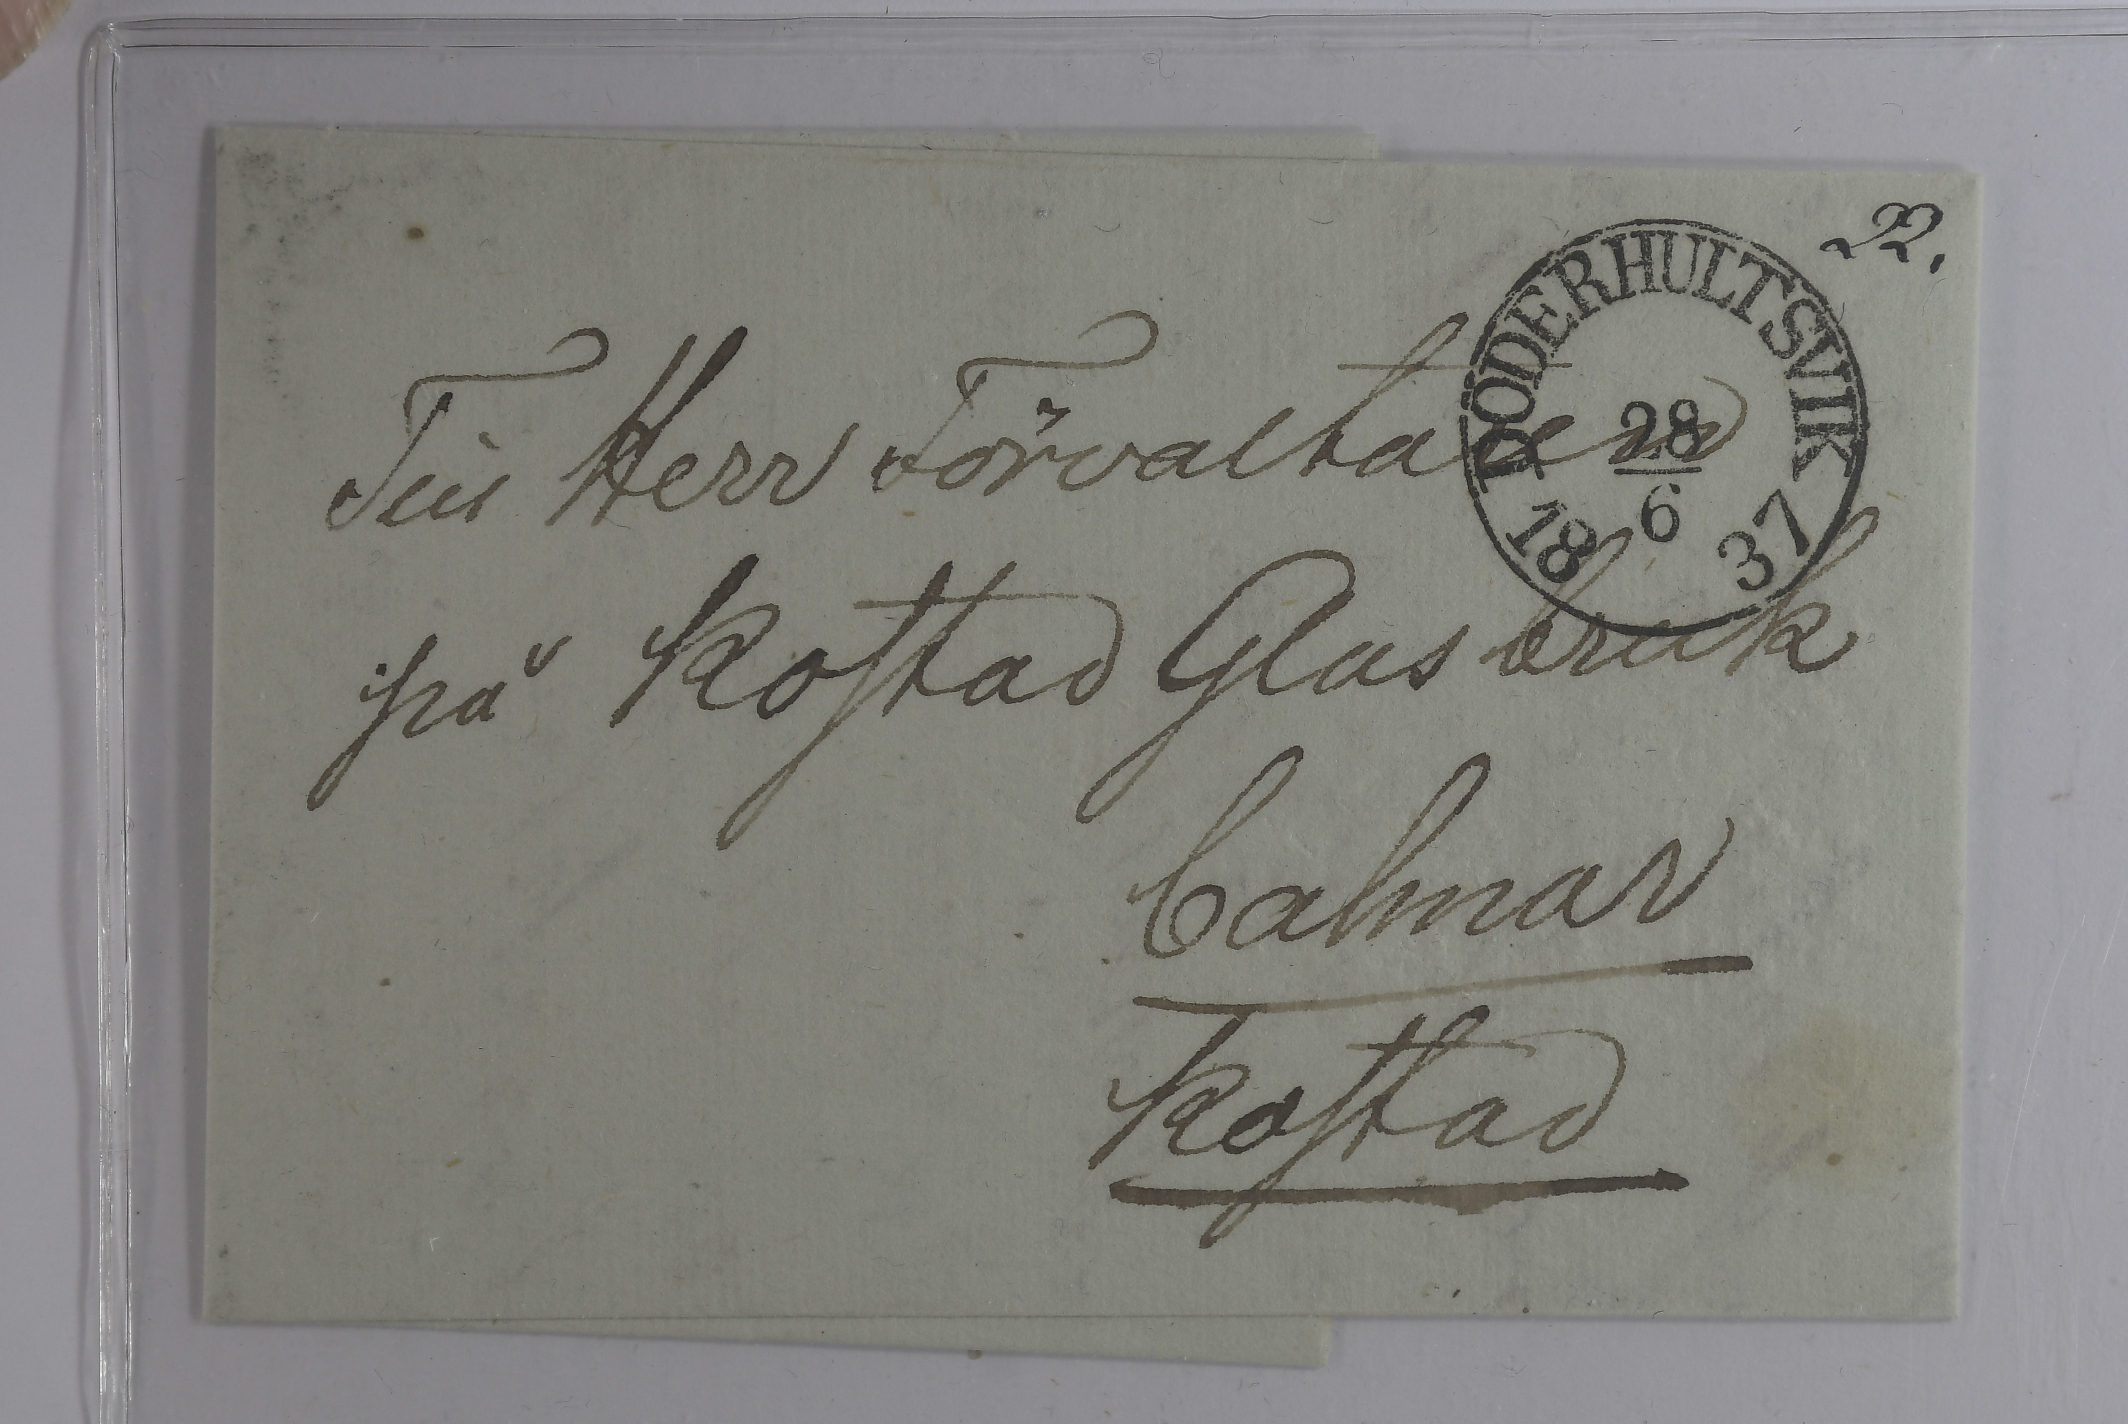 22.
DÖDERHULTSVIK
28
6
18 37
Till Herr Förvaltaren
på Kostad Glasbruk
Calmar
Kostad